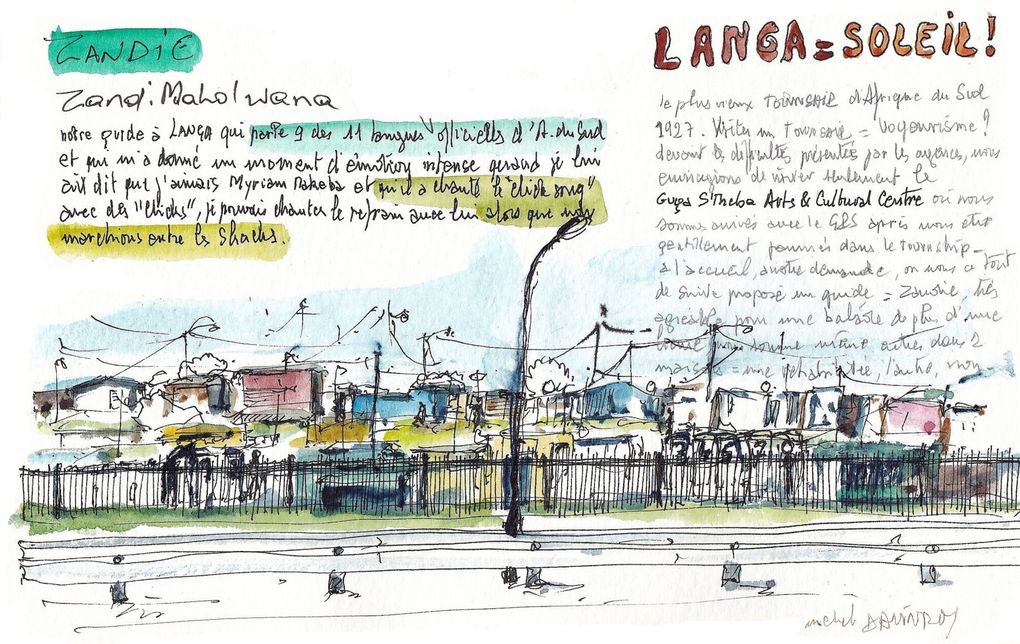 ZANDIE
Zandi Maholwana
notre guide à LANGA qui parle 9 des 11 langues officielles d'A. du Sud
et qui m'a donné un moment d'émotion intense quand je lui
ai dit que j'aimais Myriam Makeba et qu'il a chanté le "click song"
avec des "clicks", je pouvais chanter le refrain avec lui alors que nous
marchions entre les Shacks.
LANGA = SOLEIL!
le plus vieux TOWNSHIP d'Afrique du Sud
1927. Visiter un township = voyeurisme?
devant les difficultés présentées par les agences, nous
envisagions de visiter seulement le
Guga S'Thebe Arts & Cultural Centre où nous
sommes arrivés avec le GPS après nous être
gentillement paumés dans le township -
à l'accueil, à notre demande, on nous a tout
de suite proposé un guide = Zandie, très
agréable pour une balade de plus d'une
nous sommes même entrés dans 2
maisons = une réhabilitée, l'autre, non -
michel